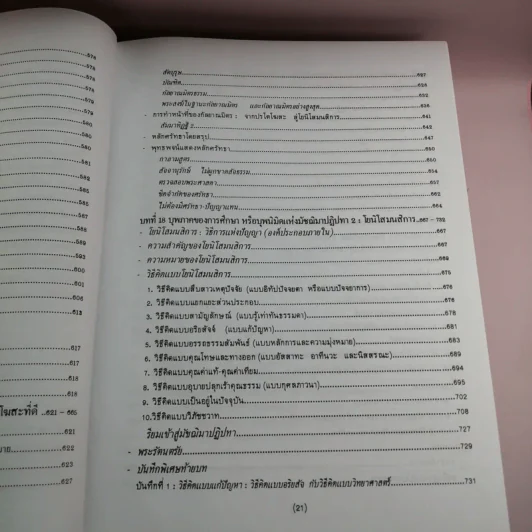 574
574
575
576
576
579
579
580
580
585
590
592
594
595
596
600
605
608
613
617
617
618
618
โฆสะที่ดี ..621 - 665
621
นาย.......622
622
627
สัตบุรุษ.......627
บัณฑิต.......628
กัลยาณมิตรธรรม.......632
พระสงฆ์ในฐานะกัลยาณมิตร และกัลยาณมิตรอย่างสูงสุด.......636
- การทำหน้าที่ของกัลยาณมิตร : จากปรโตโฆสะ สู่โยนิโสมนสิการ.......641
สัมมาทิฏฐิ 2.......642
- หลักศรัทธาโดยสรุป.......647
- พุทธพจน์แสดงหลักศรัทธา.......650
กาลามสูตร.......650
สัจจานุรักษ์ ไม่ผูกขาดสัจธรรม.......654
ตรวจสอบพระศาสดา.......656
ขีดจำกัดของศรัทธา.......662
ไม่ต้องมีศรัทธา-ปัญญาแทน.......664
บทที่ 18 บุพภาคของการศึกษา หรือบุพนิมิตแห่งมัชฌิมาปฏิปทา 2 : โยนิโสมนสิการ..667 - 732
- โยนิโสมนสิการ : วิธีการแห่งปัญญา (องค์ประกอบภายใน).......667
- ความสำคัญของโยนิโสมนสิการ.......667
- ความหมายของโยนิโสมนสิการ.......669
- วิธีคิดแบบโยนิโสมนสิการ.......675
1. วิธีคิดแบบสืบสาวเหตุปัจจัย (แบบอิทัปปัจจยตา หรือแบบปัจจยาการ).......676
2. วิธีคิดแบบแยกแยะส่วนประกอบ.......678
3. วิธีคิดแบบสามัญลักษณ์ (แบบรู้เท่าทันธรรมดา).......678
4. วิธีคิดแบบอริยสัจจ์ (แบบแก้ปัญหา).......681
5. วิธีคิดแบบอรรถธรรมสัมพันธ์ (แบบหลักการและความมุ่งหมาย).......683
6. วิธีคิดแบบคุณโทษและทางออก (แบบอัสสาทะ อาทีนวะ และนิสสรณะ).......689
7. วิธีคิดแบบคุณค่าแท้-คุณค่าเทียม.......694
8. วิธีคิดแบบอุบายปลุกเร้าคุณธรรม (แบบกุศลภาวนา).......695
9. วิธีคิดแบบเป็นอยู่ในปัจจุบัน.......702
10.วิธีคิดแบบวิภัชชวาท.......708
เรียมเข้าสู่มัชฌิมาปฏิปทา.......727
- พระรัตนตรัย.......729
- บันทึกพิเศษท้ายบท
บันทึกที่ 1 : วิธีคิดแบบแก้ปัญหา : วิธีคิดแบบอริยสัจ กับวิธีคิดแบบวิทยาศาสตร์.......731
(21)